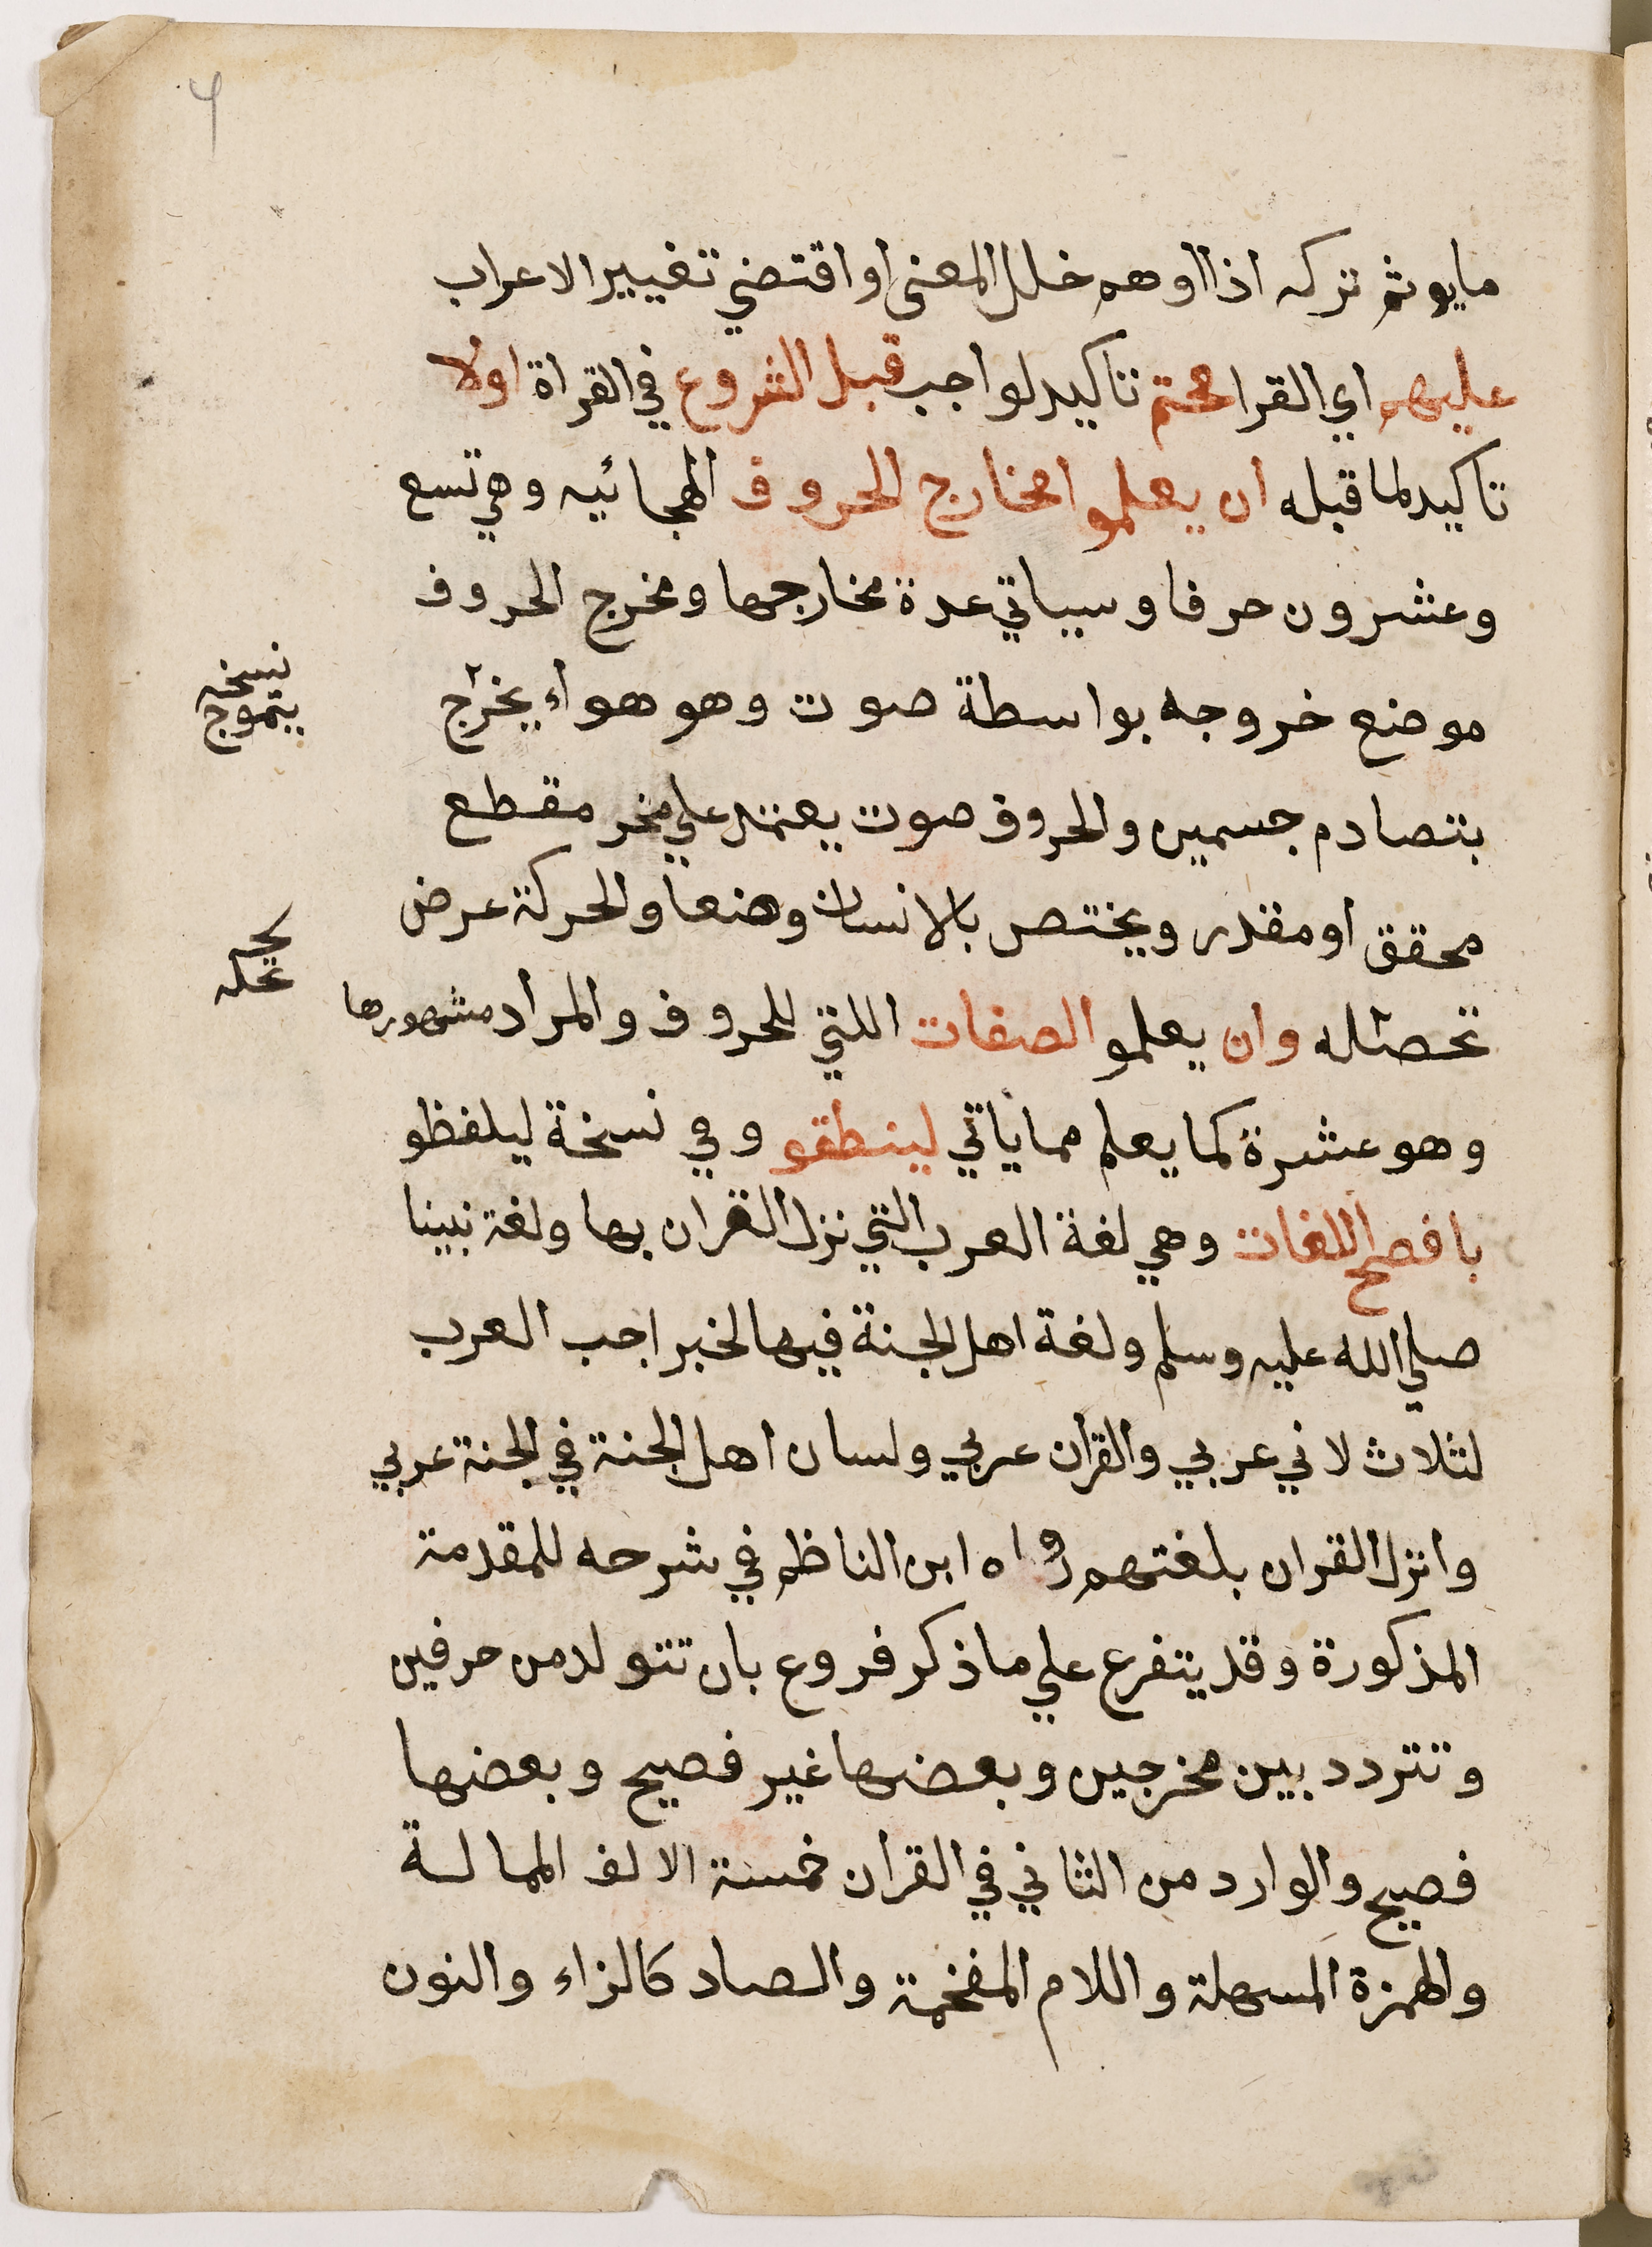 مايوثم تركه اذا اوهم خلل المعنى او اقتضي تغيير الاعراب
عليهم اي القرا محتم تاكيد لواجب قبل الشروع في القراة اولا
تاكيد لما قبله ان يعلموا مخارج الحروف الهجائيه وهي تسع
وعشرون حرفا وسياتي عدة مخارجها ومخرج الحروف
موضع خروجه بواسطة صوت وهو هواء يخرج
نسخه
يتموج
بتصادم جسمين والحروف صوت يعتمد علي مخر مقطع
محقق او مقدر ويختص بالانسان وضعا والحركة عرض
تحصله وان يعلمو الصفات اللتي للحروف والمراد مشهورها
وهو عشرة كما يعلم مما ياتي لينطقو وفي نسخة ليلفظو
بافصح اللغات وهي لغة العرب التي نزل القران بها ولغة نبينا
صلي الله عليه وسلم ولغة اهل الجنة فيها لخبر احب العرب
لثلاث لاني عربي والقران عربي ولسان اهل الجنة في الجنة عربي
وانزل القران بلغتهم رواه ابن الناظم في شرحه للمقدمة
المذكورة وقد يتفرع علي ما ذكر فروع بان تتولد من حرفين
وتتردد بين مخرجين وبعضها غير فصيح وبعضها
فصيح والوارد من الثاني في القران خمسة الالف الممالة
والهمزة المسهلة واللام المفخمة والصاد كالزاء والنون